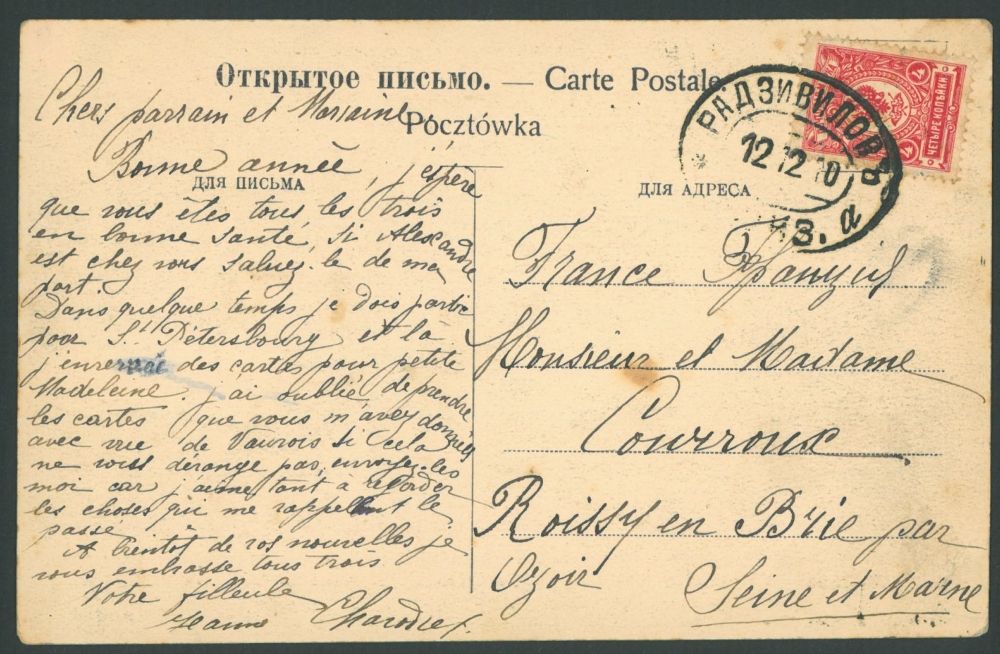 Открытое письмо. — Carte Postale
Pocztówka
Chers parrain et Marraine,
ДЛЯ ПИСЬМА
Bonne année, j'éspère
que vous êtes tous les trois
en bonne santé, si Alexandre
est chez vous saluez-le de ma
part.
Dans quelque temps je dois partir
pour St Pétersbourg et là
j'enverrai des cartes pour petite
Madeleine. j'ai oublié de prendre
les cartes que vous m'avez données
avec vue de Vaurois si cela
ne vous dérange pas, envoyez-les
moi car j'aime tant à garder
les choses qui me rappellent le
passé
A bientôt de vos nouvelles je
vous embrasse tous trois
Votre filleule
Jeanne
ДЛЯ АДРЕСА
РАДЗИВИЛОВЪ
12 12 10
а
4 4
ЧЕТЫРЕ КОПѢЙКИ
France
Monsieur et Madame
Couvroux
Roissy en Brie par
Ozoir
Seine et Marne